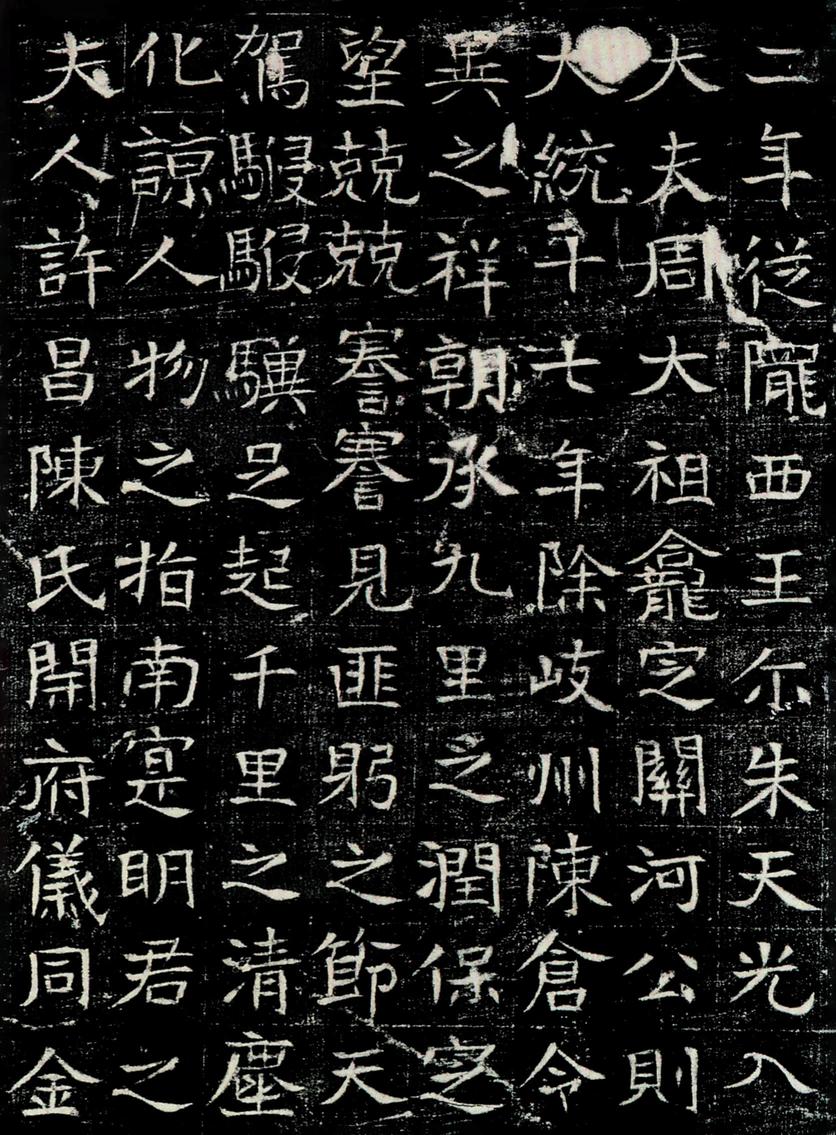 二年従隴西王尔朱天光入
大夫周大祖龕定關河公則
大統十七年除岐州陳倉令
異之祥朝承九里之潤保定
望兢兢謇謇見匪躬之節天
駕駸駸驥足起千里之清塵
化諒人物之指南寔明君之
夫人許昌陳氏開府儀同金